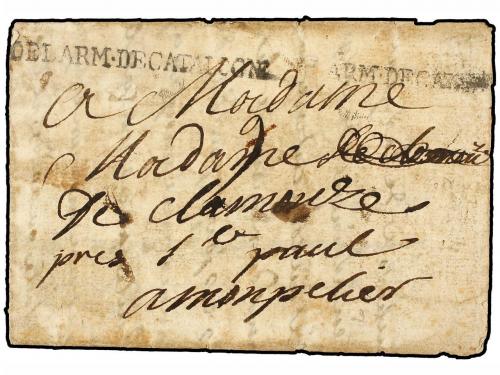 DELARM·DECATALOGNE ARM·DECATA
a Madame
Madame
De clamouze
pres st paul
a monpelier